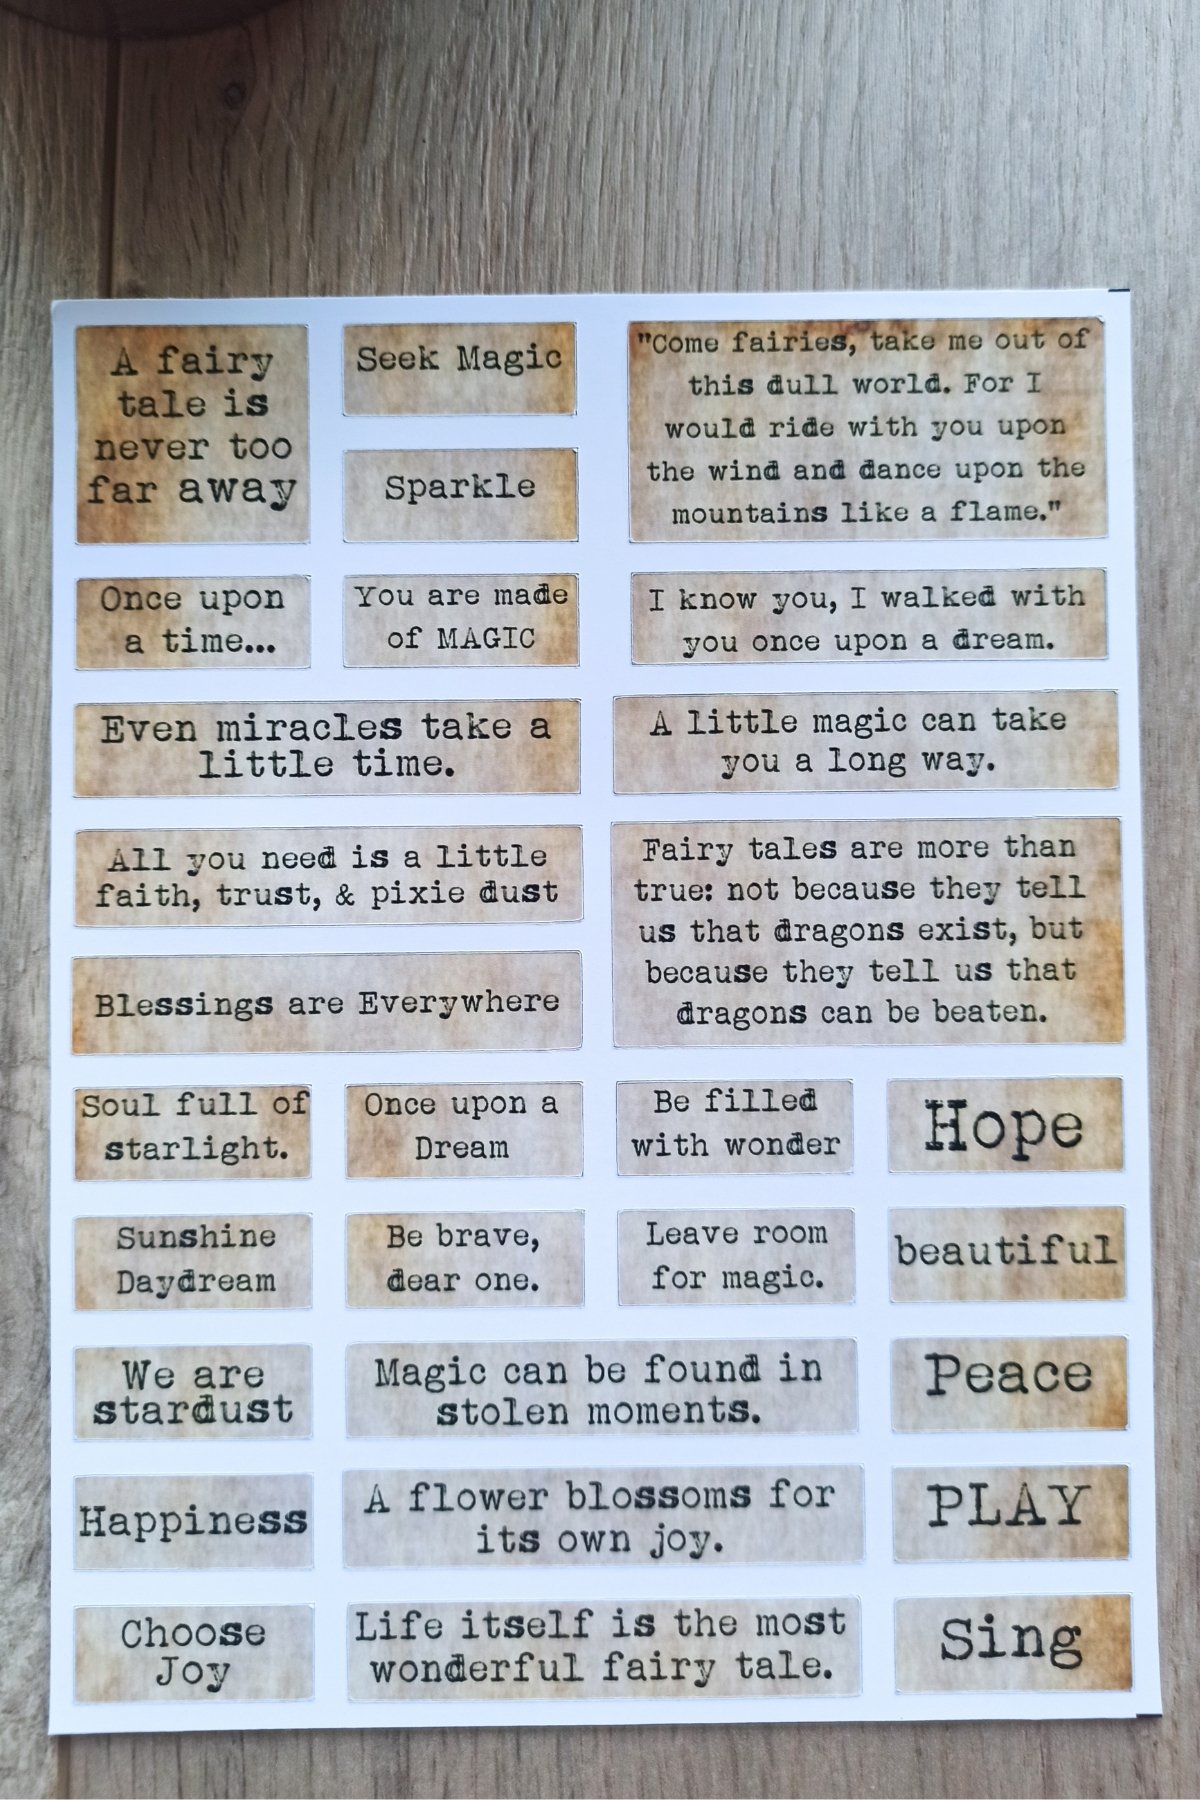 A fairy
tale is
never too
far away
Seek Magic
Sparkle
"Come fairies, take me out of
this dull world. For I
would ride with you upon
the wind and dance upon the
mountains like a flame."
Once upon
a time...
You are made
of MAGIC
I know you, I walked with
you once upon a dream.
Even miracles take a
little time.
A little magic can take
you a long way.
All you need is a little
faith, trust, & pixie dust
Fairy tales are more than
true: not because they tell
us that dragons exist, but
because they tell us that
dragons can be beaten.
Blessings are Everywhere
Soul full of
starlight.
Once upon a
Dream
Be filled
with wonder
Hope
Sunshine
Daydream
Be brave,
dear one.
Leave room
for magic.
beautiful
We are
stardust
Magic can be found in
stolen moments.
Peace
Happiness
A flower blossoms for
its own joy.
PLAY
Choose
Joy
Life itself is the most
wonderful fairy tale.
Sing